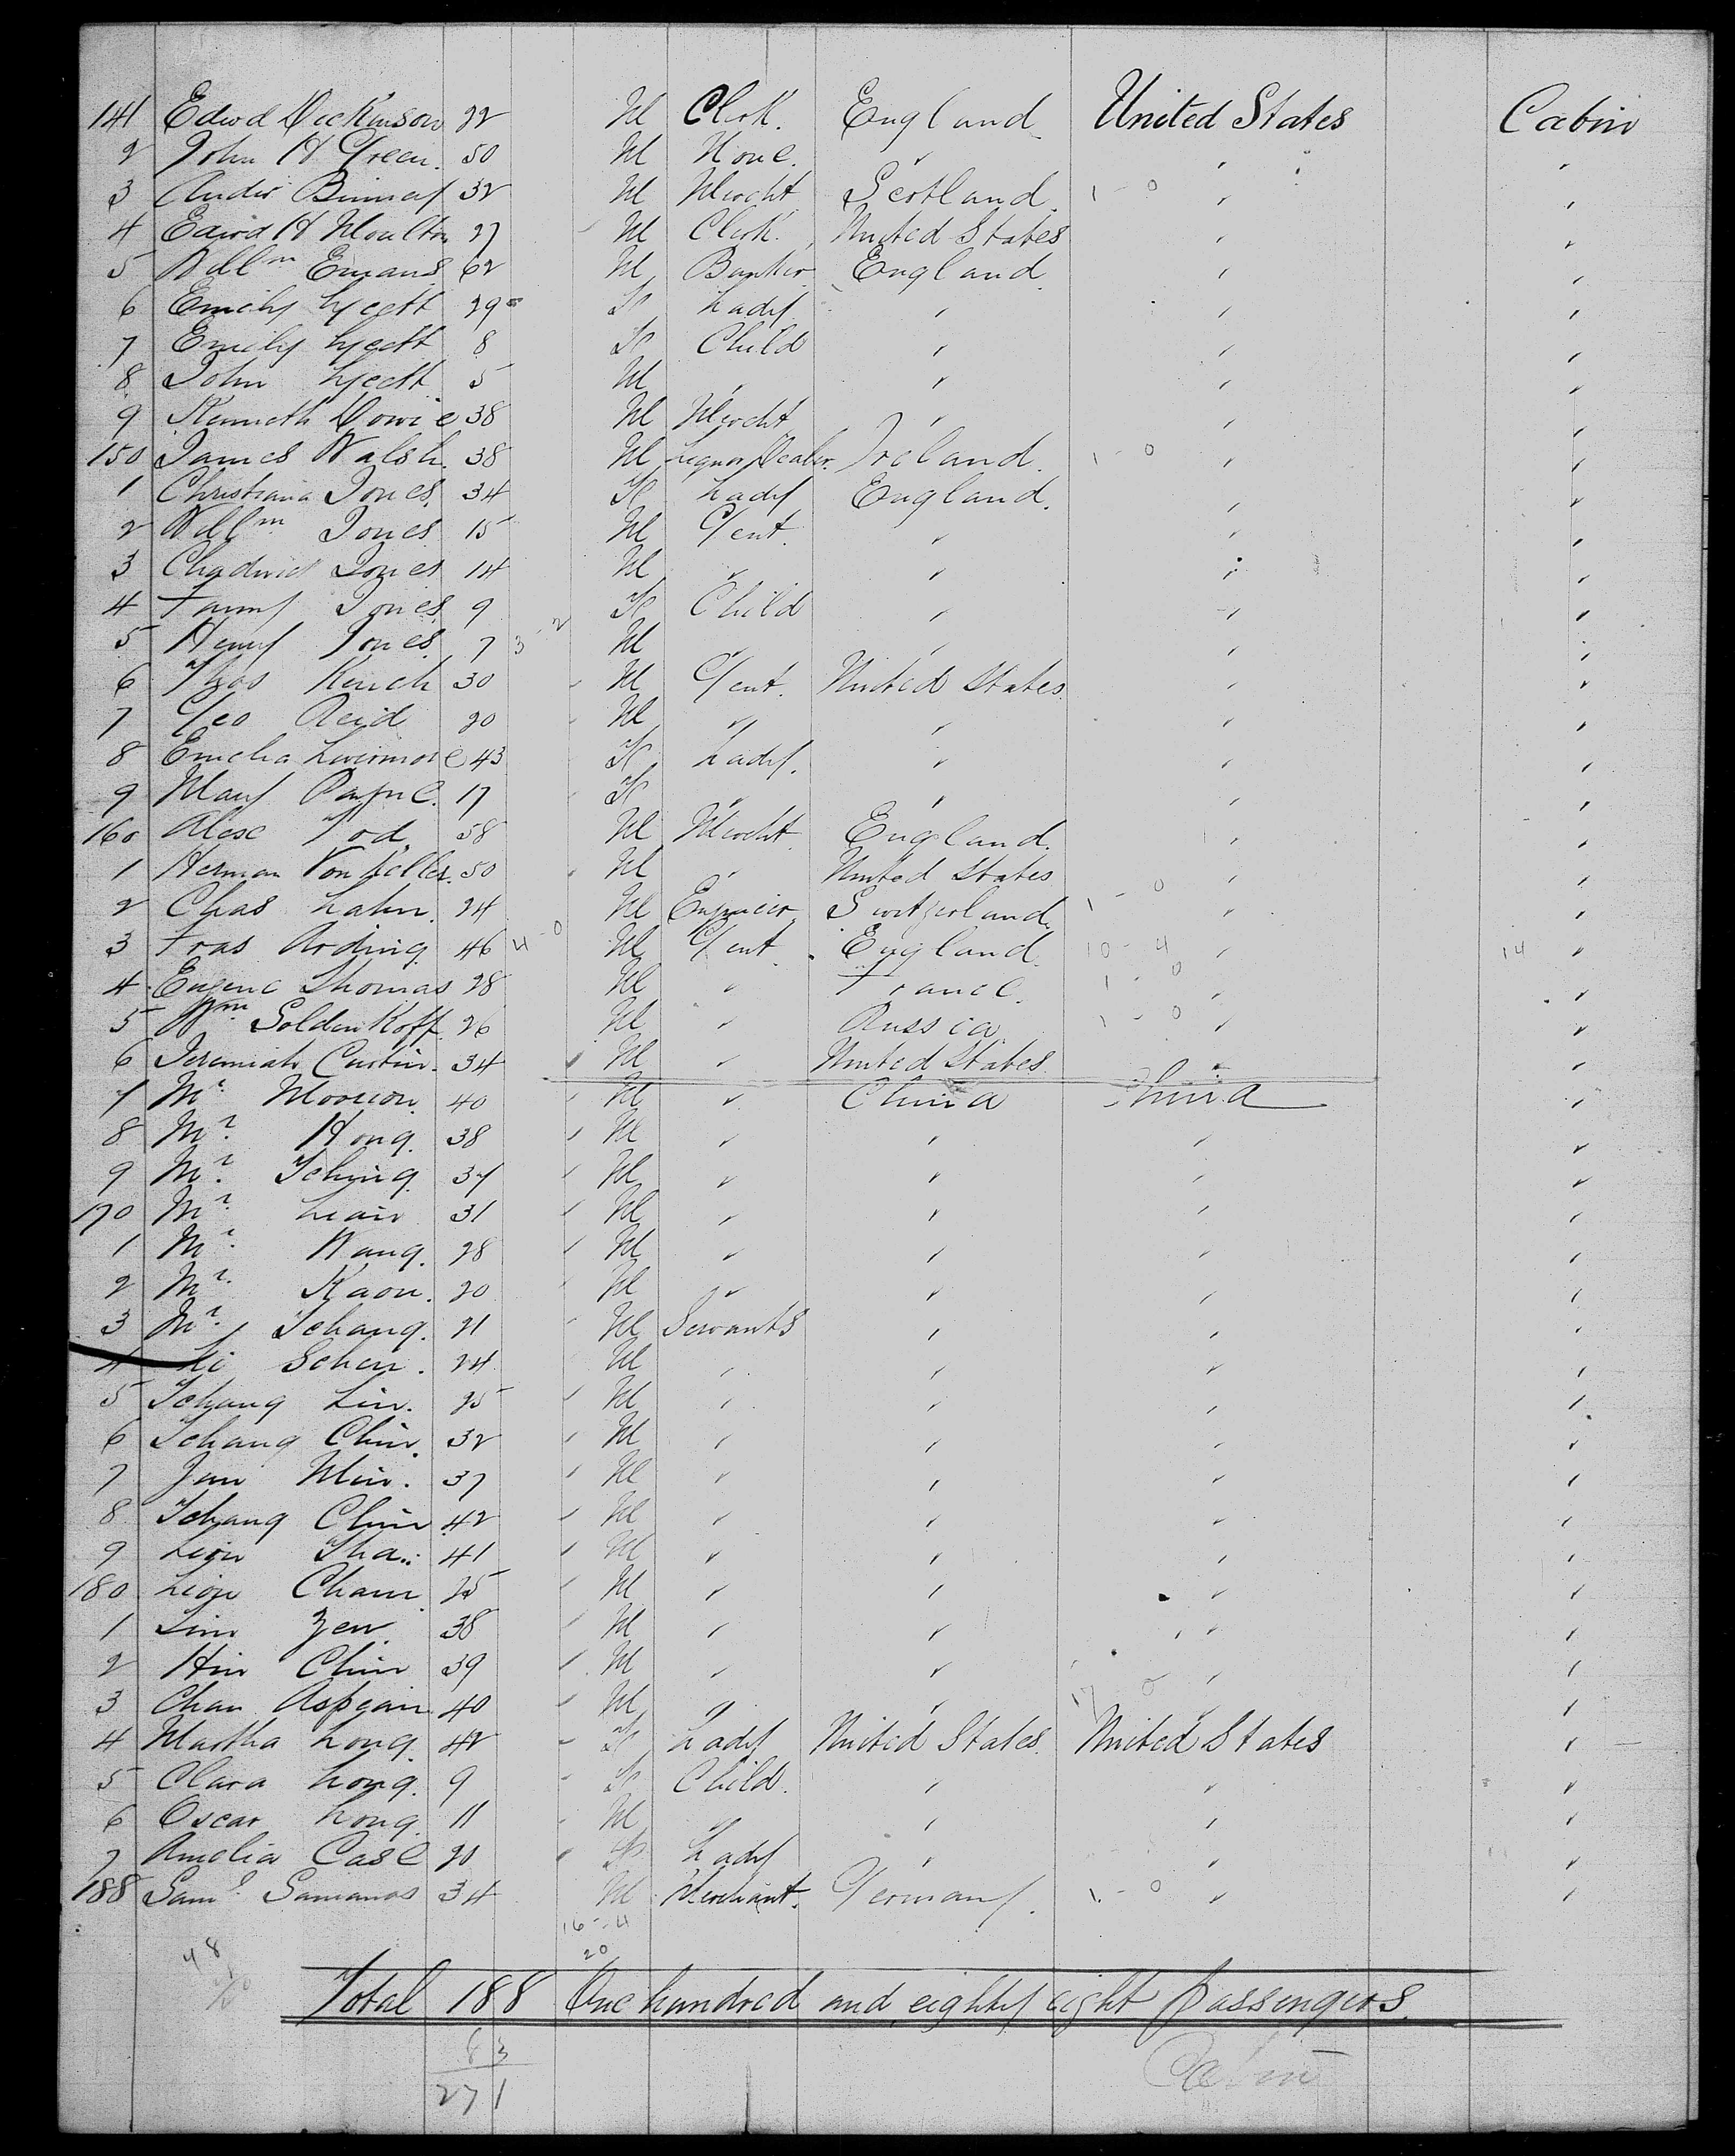 141 Edwd Dickinson 22 M Clerk. England United States Cabin
2 John H Green. 50 M None. " " "
3 Andw Binney 32 M Mercht Scotland 1-0 " "
4 Edwd H Moulton 27 M Clerk. United States " "
5 Willm Emans 62 M Banker England " "
6 Emily Lycett 29 F Lady " " "
7 Emily Lycett 8 F Child " " "
8 John Lycett 5 M " " " "
9 Kenneth Dowie 38 M Mercht " " "
150 James Walsh. 38 M Liquor Dealer. Ireland. 1-0 " "
1 Christiana Jones 34 F Lady England. " "
2 Willm Jones 15 M Gent. " " "
3 Chadwick Jones 14 M " " " "
4 Fanny Jones 9 F Child " " "
5 Henry Jones 7 3-2 M " " " "
6 Thos Kinch 30 M Gent. United States " "
7 Geo Reid 20 M " " " "
8 Emelia Livermore 43 F Lady. " " "
9 Mary Payne. 17 F " " " "
160 Alex Tod 58 M Mercht. England. " "
1 Herman Von Keller. 50 M " United States " "
2 Chas Lahn. 24 M Engineer. Switzerland 1-0 " "
3 Fras Arding 46 4-0 M Gent. England 10-4 " 14 "
4 Eugene Thomas 28 M " France. 1-0 " "
5 Wm Soldenkoff 26 M " Russia 1-0 " "
6 Jeremiah Curtin. 34 M " United States " "
7 Mr. 40 M " China China "
8 Mr. Hong 38 M " " " "
9 Mr. Tching 37 M " " " "
170 Mr. Lian 31 M " " " "
1 Mr. Wang. 28 M " " " "
2 Mr. Kaou. 20 M " " " "
3 Mr. Tchang. 21 M Servants " " "
4 Li Schen. 24 M " " " "
5 Tchang Lin. 25 M " " " "
6 Tchang Chin. 32 M " " " "
7 Jan Min. 37 M " " " "
8 Tchang Chin 42 M " " " "
9 Lion Tha.. 41 M " " " "
180 Lion Cham 25 M " " " "
1 Lin Yen 38 M " " " "
2 Hin Chin 39 M " " " "
3 Chan 40 M " " 17 0 " "
4 Martha Long. 42 F Lady United States United States "
5 Clara Long. 9 F Child. " " "
6 Oscar Long 11 M " " " "
7 Amelia Case 20 F Lady " " "
188 Saml. Samanos 34 M Merchant. Germany. 1-0 " "
16-4
48 20
Total 188 One hundred and eighty eight passengers.
83
271
Cabin